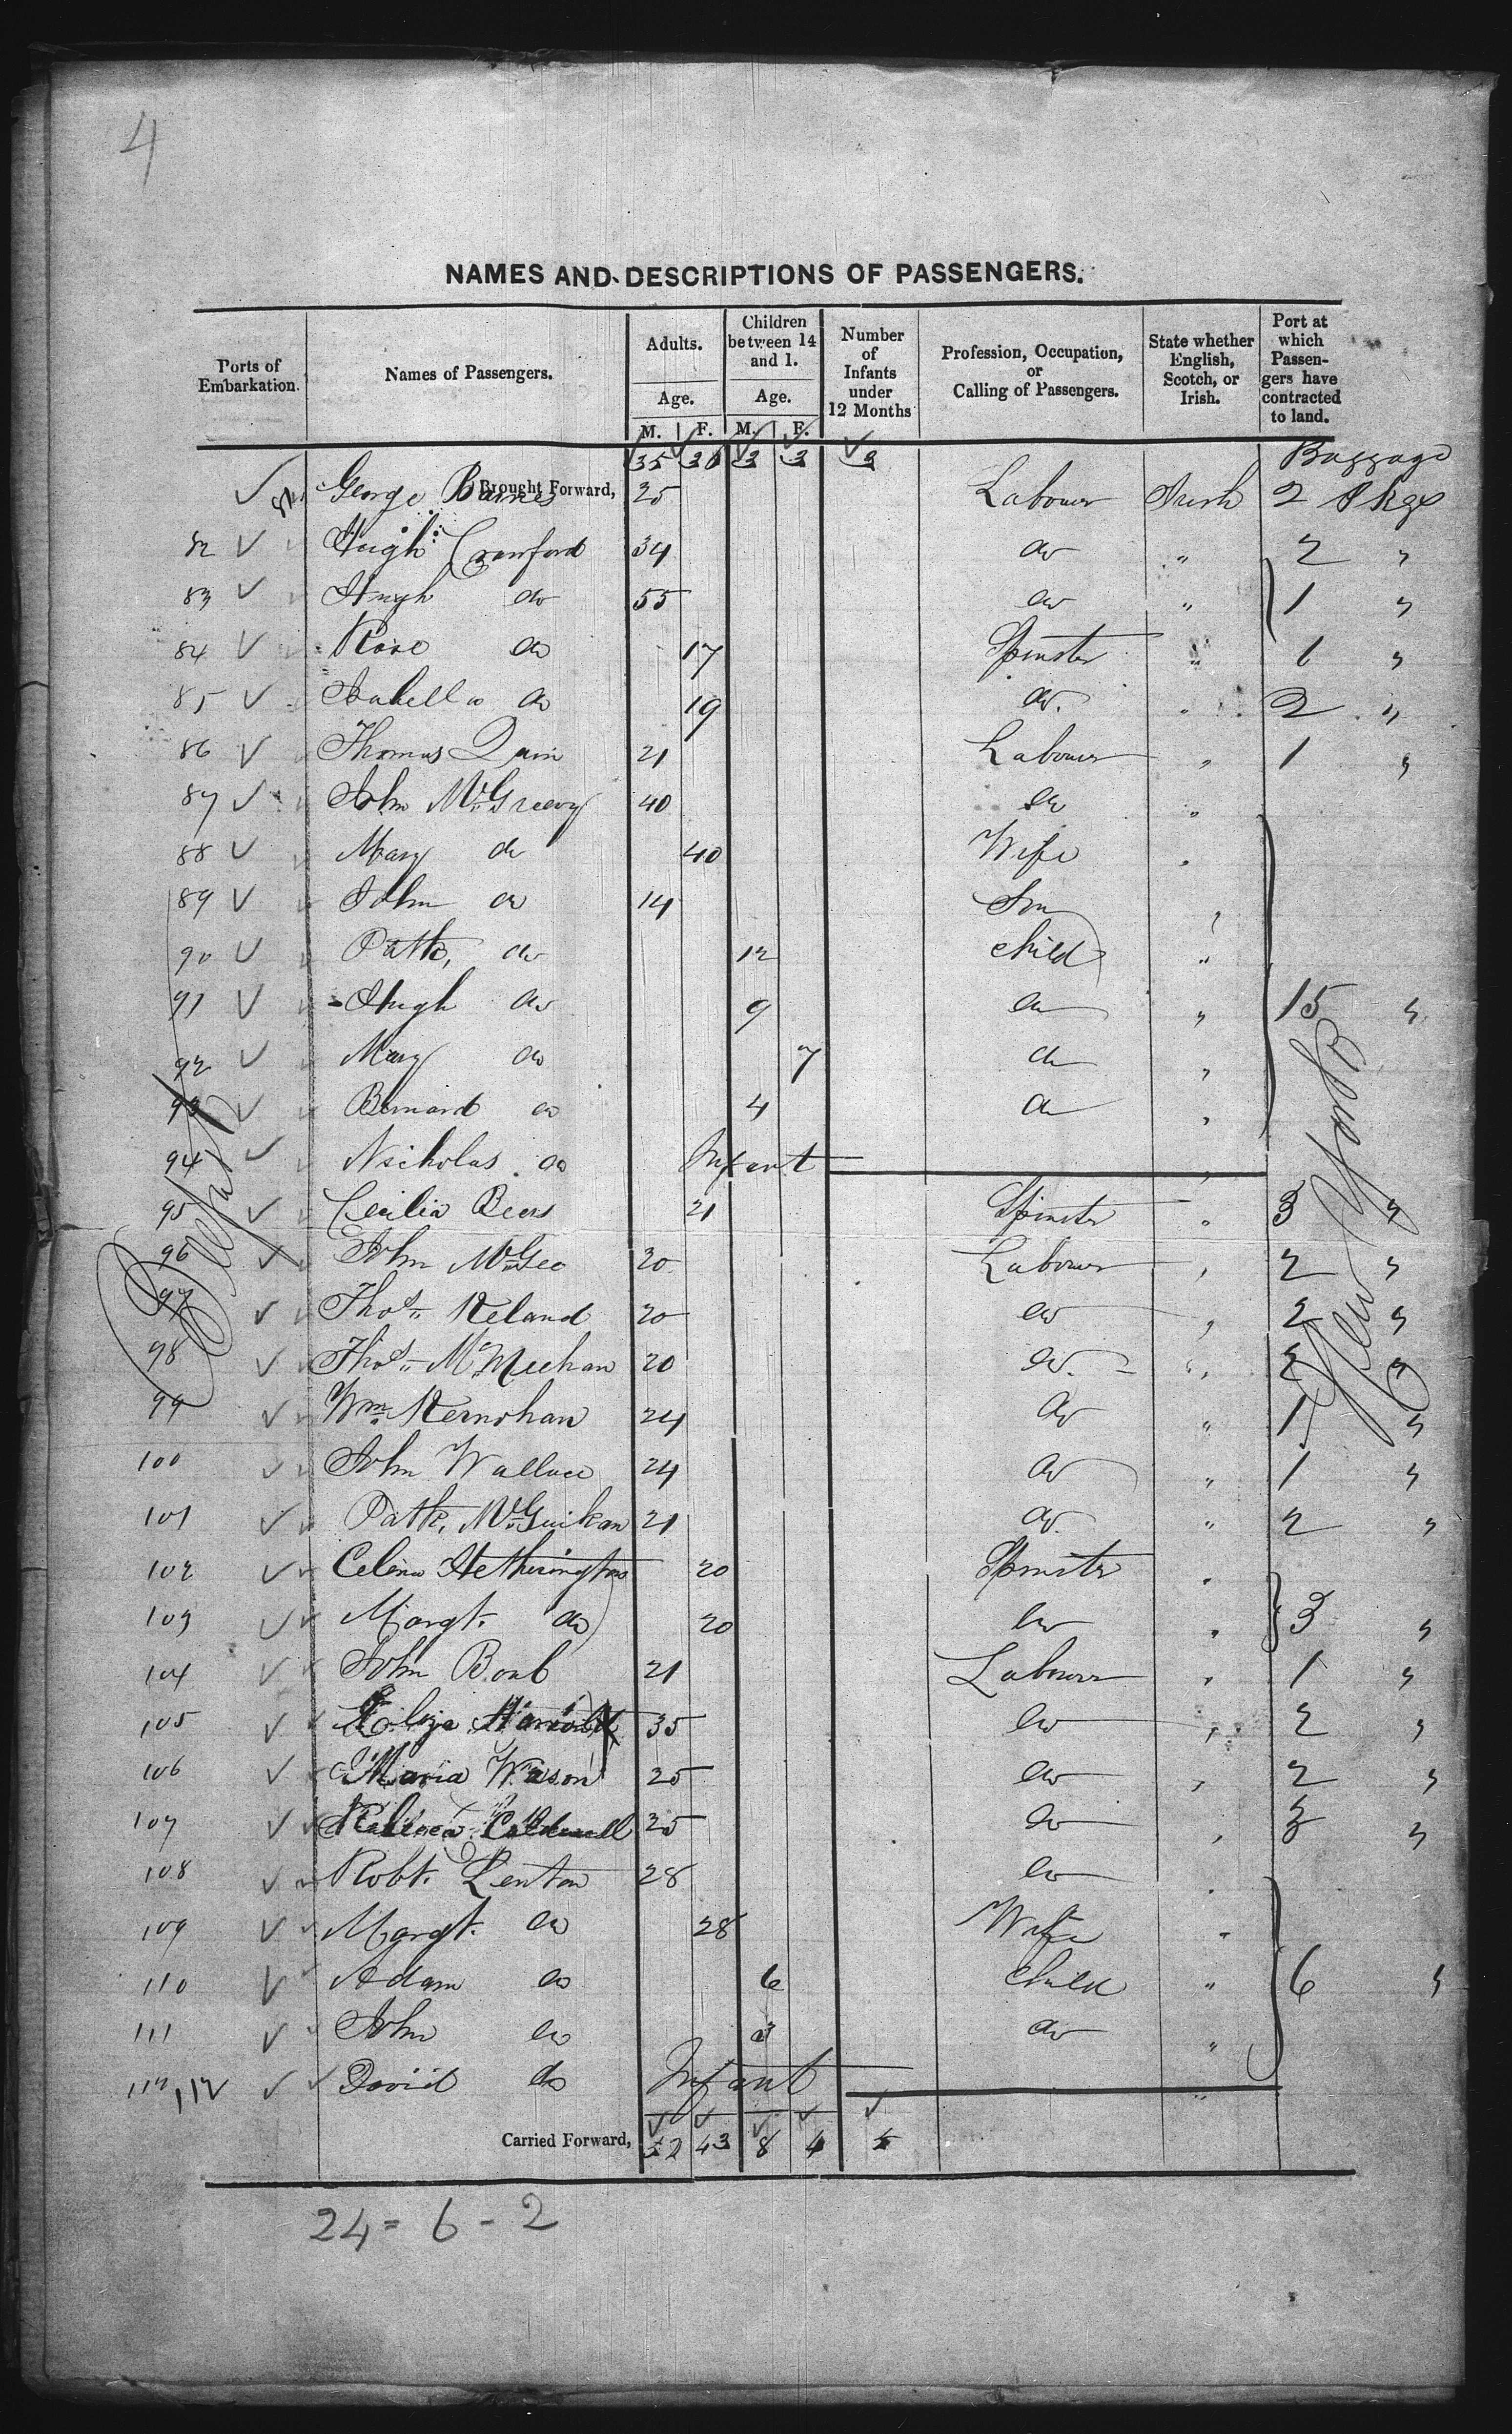 4
NAMES AND DESCRIPTIONS OF PASSENGERS.
Ports of Embarkation. Names of Passengers. Adults. Age. M. F. Children between 14 and 1. Age. M. F. Number of Infants under 12 Months Profession, Occupation, or Calling of Passengers. State whether English, Scotch, or Irish. Port at which Passengers have contracted to land.
Brought Forward, 35 30 3 3 3 Baggage
81 George Barnes 25 Labourer Irish 2 Pkgs
82 Hugh Crawford 34 do " 2 "
83 Hugh do 55 do " 1 "
84 Rose do 17 Spinster " 1 "
85 Isabella do 19 do. " 2 "
86 Thomas Quin 21 Labourer " 1 "
87 John McGreevy 40 do "
88 Mary do 40 Wife "
89 John do 14 Son "
90 Patk, do 12 child "
91 Hugh do 9 do " 15 "
92 Mary do 7 do "
93 Bernard do 4 do "
94 Nicholas do Infant "
95 Cecilia Beers 21 Spinster " 3 "
96 John McGee 20 Labourer " 2 "
97 Thos. Keland 20 do " 2 "
98 Thos. McMeehan 20 do. " 2 "
99 Wm. Kernohan 24 do " 1 "
100 John Wallace 24 do " 1 "
101 Patk. McGuikan 21 do. " 2 "
102 Celena Hetherington 20 Spinster "
103 Margt. do 20 do " 3 "
104 John Boal 21 Labourer " 1 "
105 Eliza 35 do " 2 "
106 Maria Wason 25 do " 2 "
107 Rebecca Caldwell 25 do " 3 "
108 Robt. Lenton 28 do "
109 Margt. do 28 Wife "
110 Adam do 6 child " 6 "
111 John do 3 do "
112 David do Infant "
Belfast
New York
Carried Forward, 52 43 8 4 5
24 = 6 - 2